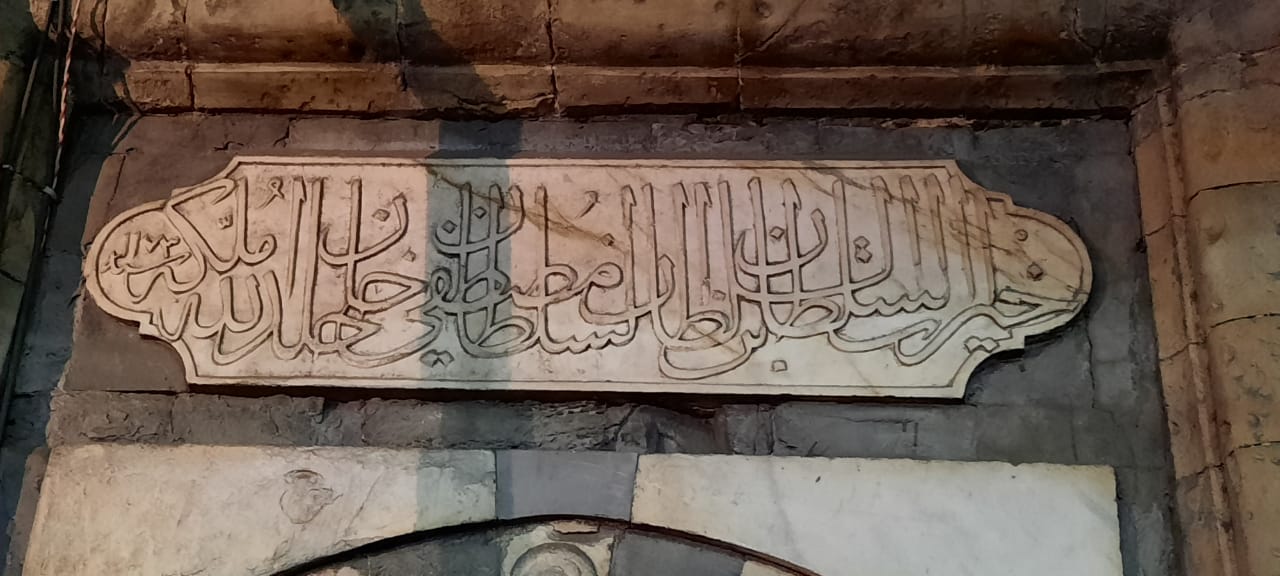 السلطان بن السلطان سلطان مصطفى خان خلد الله ملكه